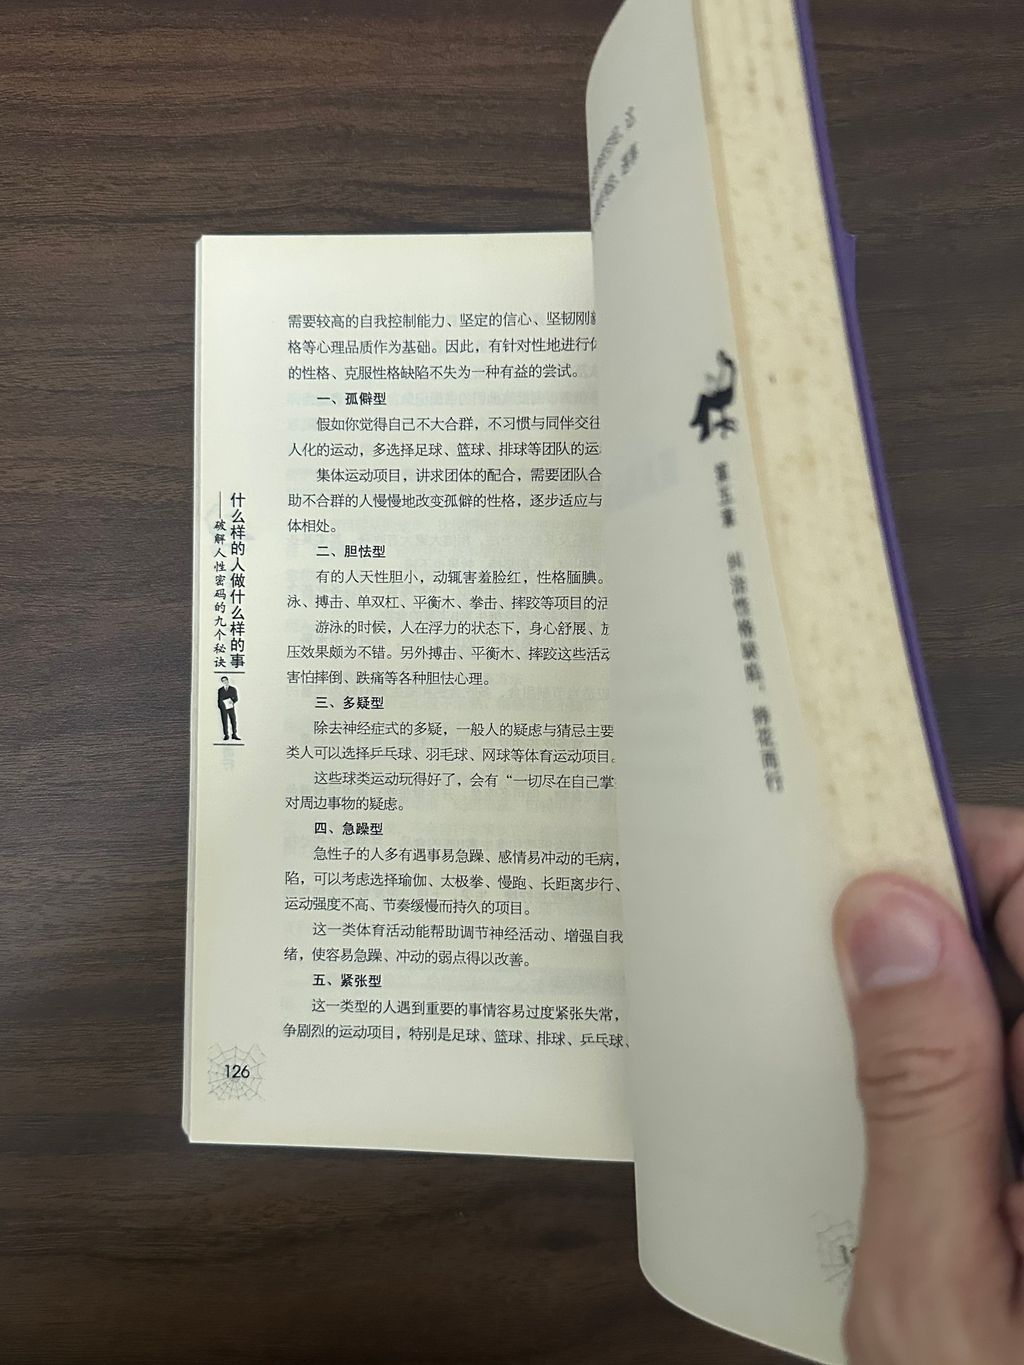 需要较高的自我控制能力、坚定的信心、坚韧刚毅
格等心理品质作为基础。因此，有针对性地进行
的性格、克服性格缺陷不失为一种有益的尝试。
一、孤僻型
假如你觉得自己不大合群，不习惯与同伴交往
人化的运动，多选择足球、篮球、排球等团队的运
集体运动项目，讲求团体的配合，需要团队合
助不合群的人慢慢地改变孤僻的性格，逐步适应与
体相处。
二、胆怯型
有的人天性胆小，动辄害羞脸红，性格腼腆。
泳、搏击、单双杠、平衡木、拳击、摔跤等项目的活
游泳的时候，人在浮力的状态下，身心舒展、
压效果颇为不错。另外搏击、平衡木、摔跤这些活动
害怕摔倒、跌痛等各种胆怯心理。
三、多疑型
除去神经症式的多疑，一般人的疑虑与猜忌主要
类人可以选择乒乓球、羽毛球、网球等体育运动项目。
这些球类运动玩得好了，会有“一切尽在自己掌
对周边事物的疑虑。
四、急躁型
急性子的人多有遇事易急躁、感情易冲动的毛病，
陷，可以考虑选择瑜伽、太极拳、慢跑、长距离步行、
运动强度不高、节奏缓慢而持久的项目。
这一类体育活动能帮助调节神经活动、增强自我
绪，使容易急躁、冲动的弱点得以改善。
五、紧张型
这一类型的人遇到重要的事情容易过度紧张失常，
争剧烈的运动项目，特别是足球、篮球、排球、乒乓球、
什么样的人做什么样的事
——破解人性密码的九个秘诀
126
第五章 纠治性格缺陷，择花而行